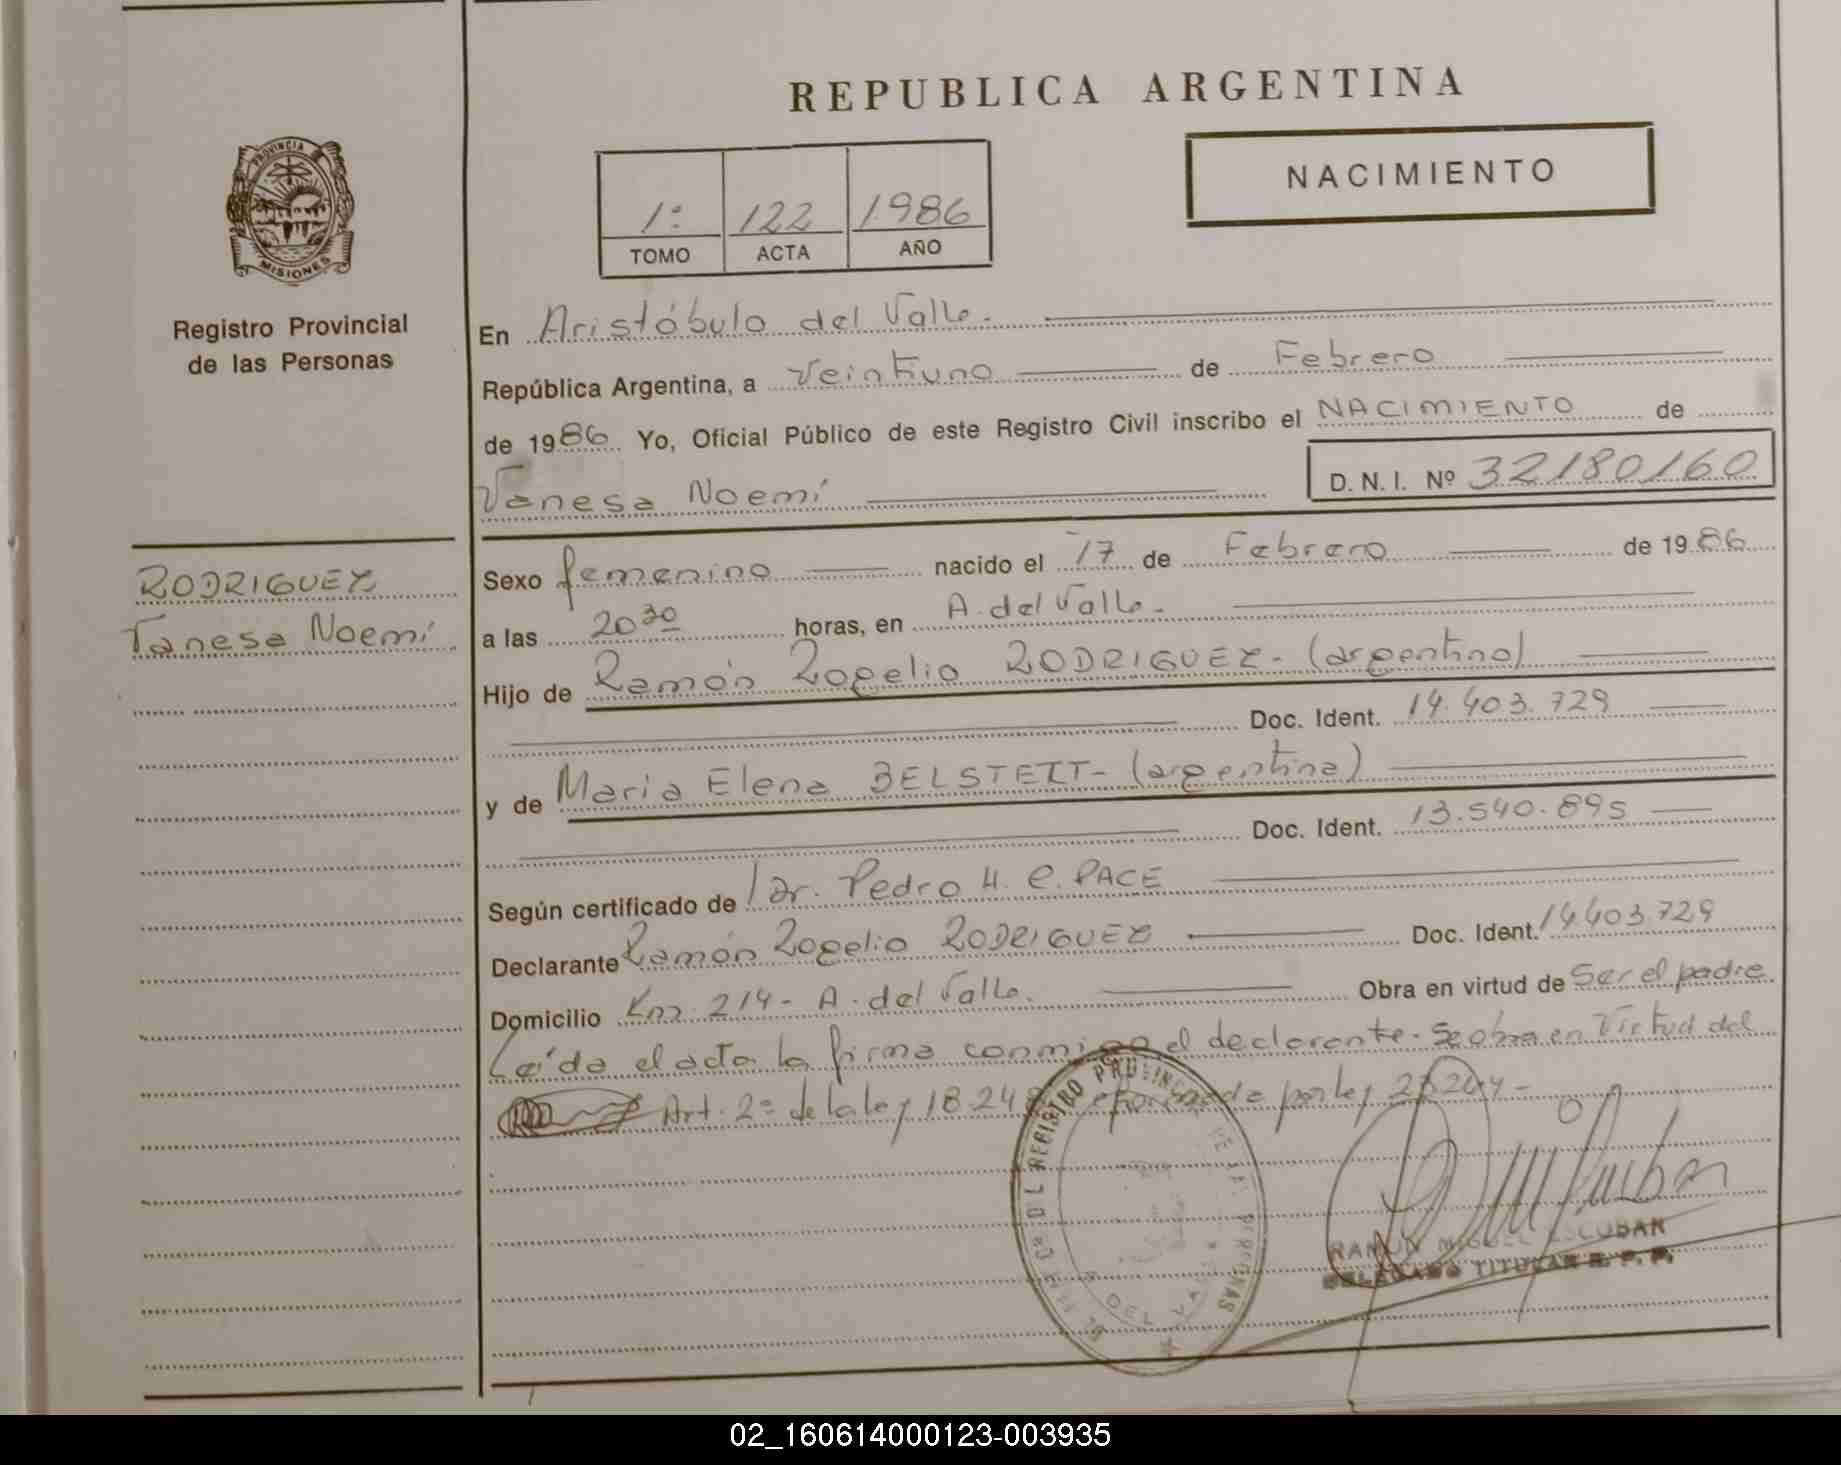 REPUBLICA ARGENTINA
PROVINCIA
MISIONES
Registro Provincial
de las Personas
NACIMIENTO
1º 122 1986
TOMO ACTA AÑO
En Aristóbulo del Valle.
República Argentina, a Veintiuno de Febrero
de 1986 Yo, Oficial Público de este Registro Civil inscribo el NACIMIENTO de
Vanesa Noemí D. N. I. Nº 32180160
RODRIGUEZ
Vanesa Noemí
Sexo femenino nacido el 17 de Febrero de 1986
a las 20 30 horas, en A. del Valle.
Hijo de Ramón Rogelio RODRIGUEZ- (argentino)
Doc. Ident. 14.403.729
y de Maria Elena BELSTEIT- (argentina)
Doc. Ident. 13.540.895
Según certificado de Dr. Pedro H. C. PACE
Declarante Ramón Rogelio RODRIGUEZ Doc. Ident. 14403729
Domicilio Km. 214- A. del Valle. Obra en virtud de Ser el padre
Leída el acta la firma conmigo el declarante. Se obra en Virtud del
Art. 2º de la ley 18.248 por ley
REGISTRO PROVINCIAL DE LAS PERSONAS
A. DEL VALLE
RAMON MIGUEL ESCOBAR
DELEGADO TITULAR R. P. P.
02_160614000123-003935